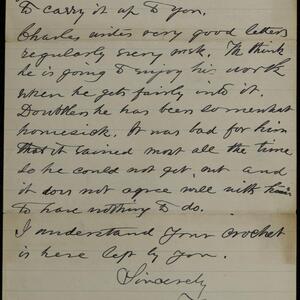 to carry it up to you.
Charles writes very good letters
regularly every week. We think
he is going to enjoy his work
when he gets fairly into it.
Doubtless he has been somewhat
homesick. It was bad for him
that it rained most all the time
so he could not get out and
it does not agree well with him
to have nothing to do.
I understand your crochet
is here left by you.
Sincerely